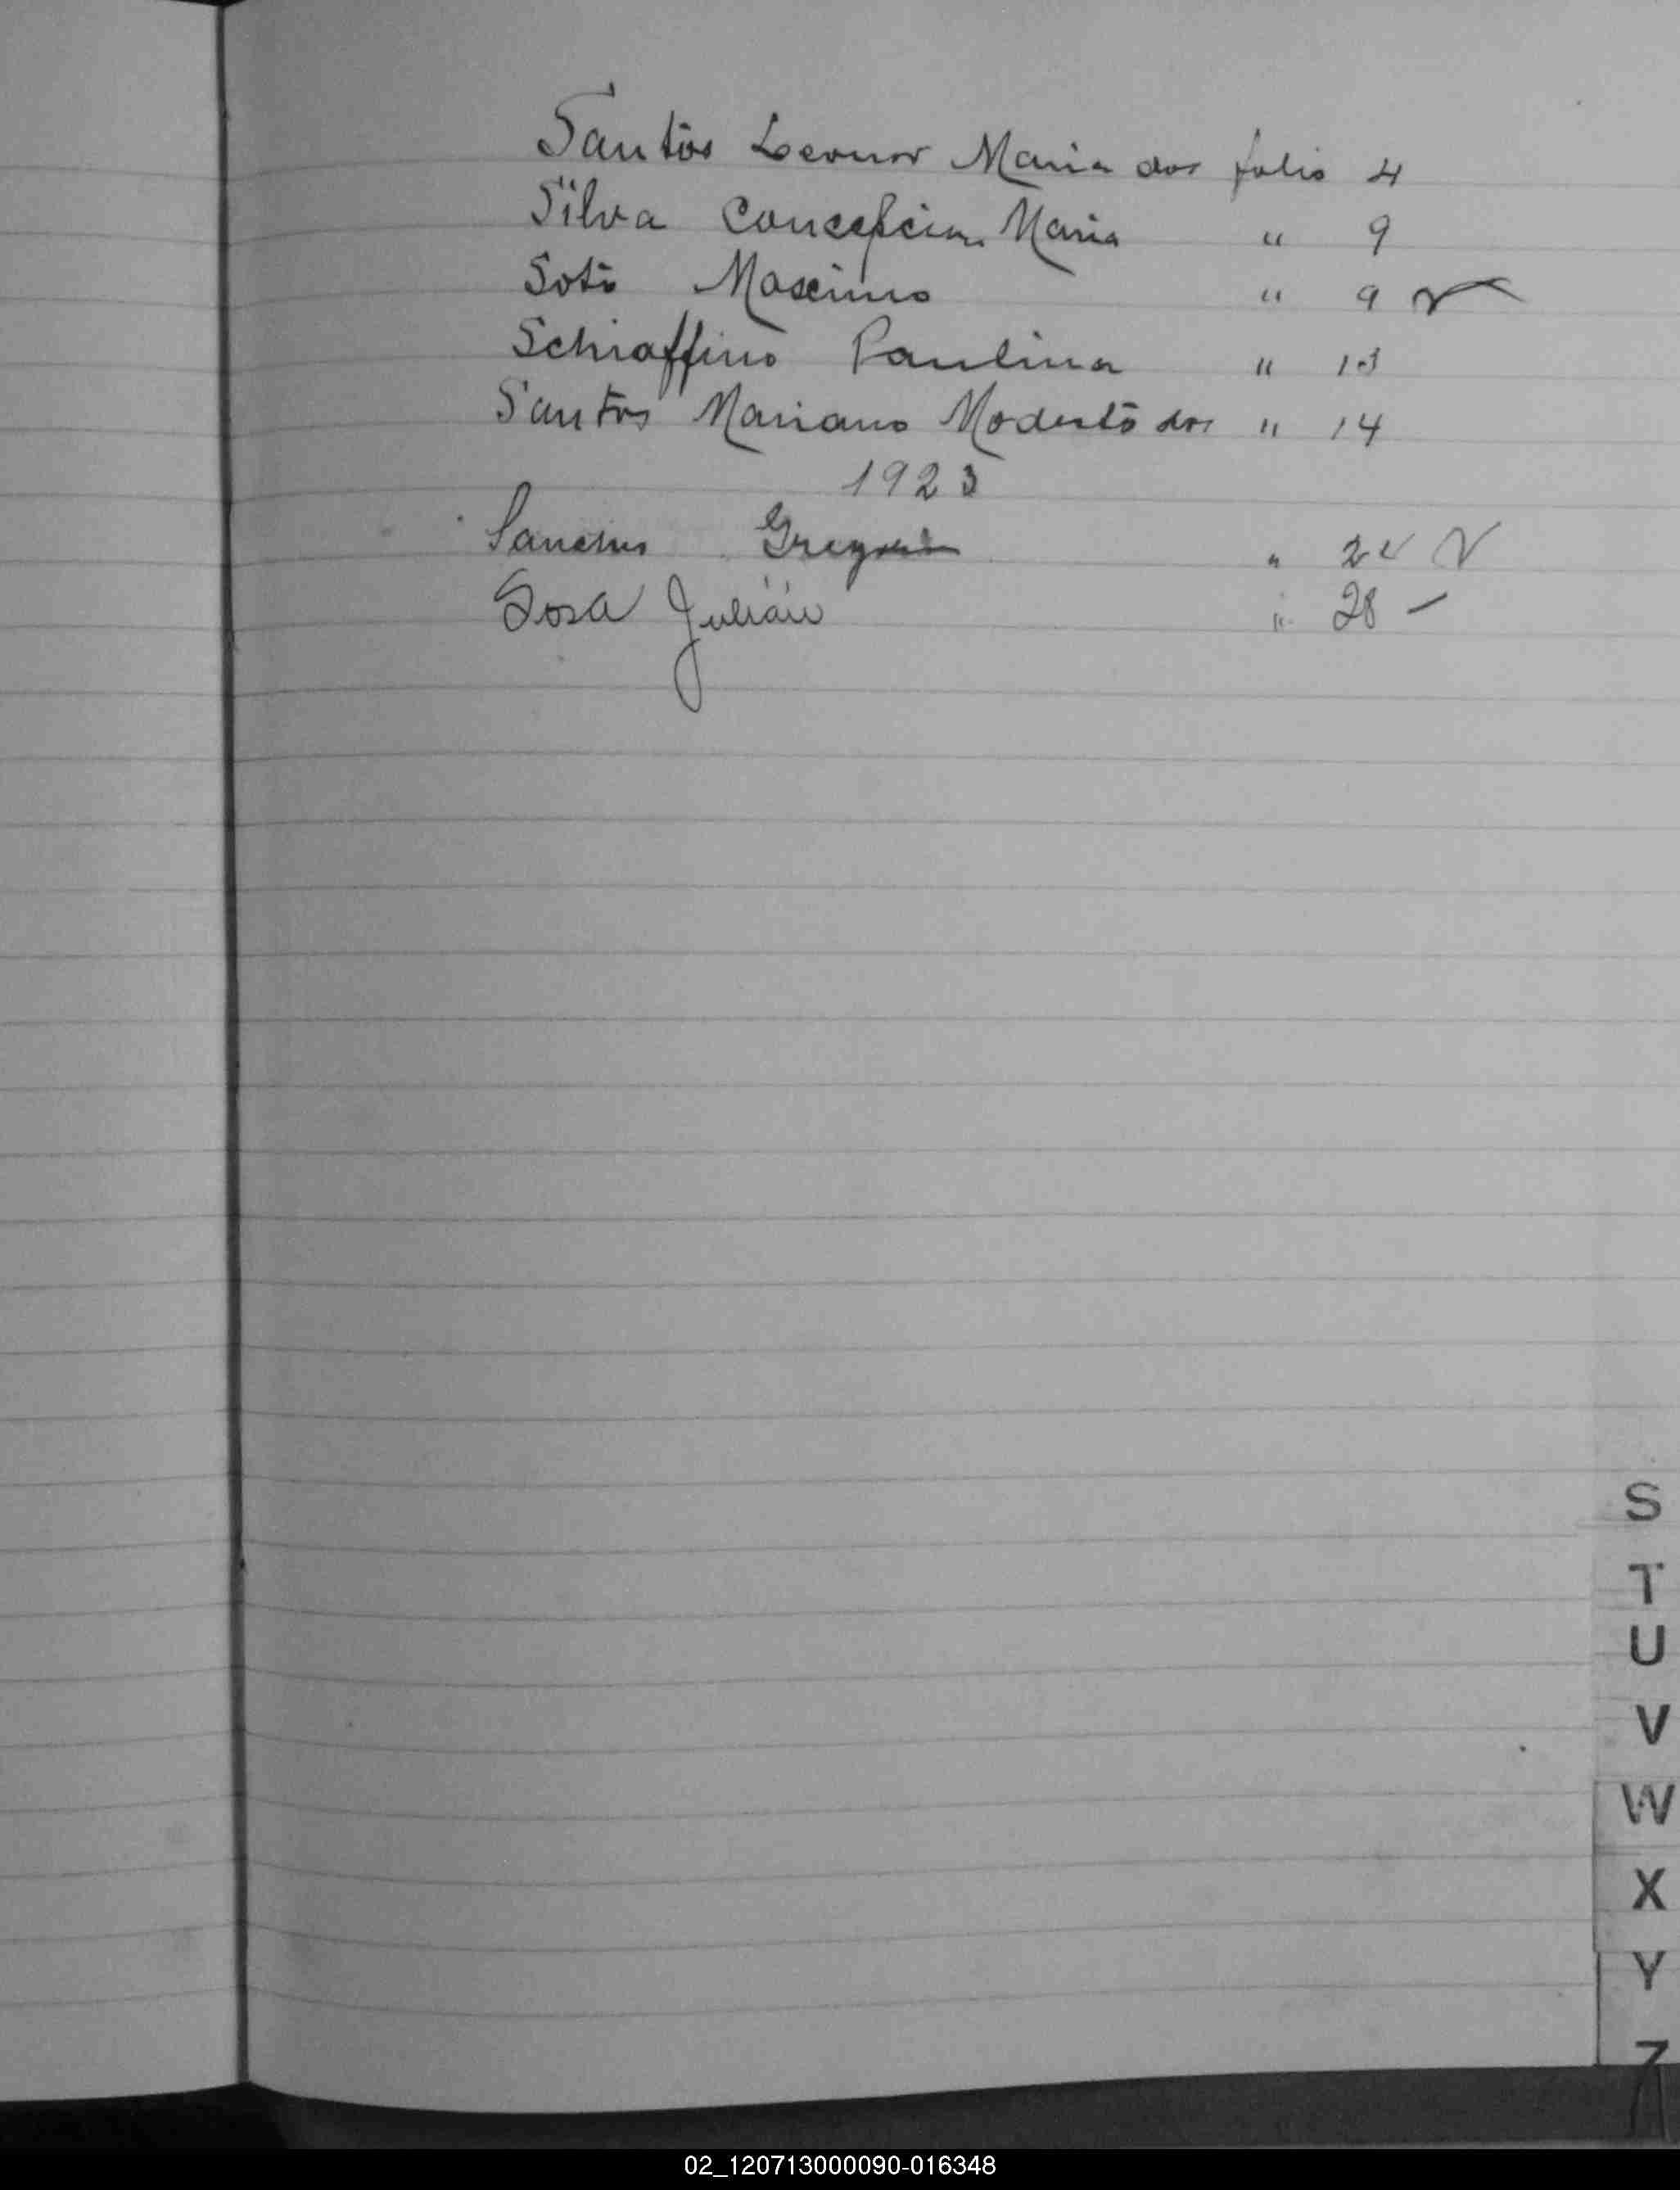 Santos Leonor Maria dos folio 4
Silva Concepcion Maria " 9
Soto Maximo " 9
Schiaffino Paulina " 13
Santos Mariano Modesto dos " 14
1923
Sanches Gregorio "
Sosa Julián " 28 –
S
T
U
V
W
X
Y
Z
02_120713000090-016348